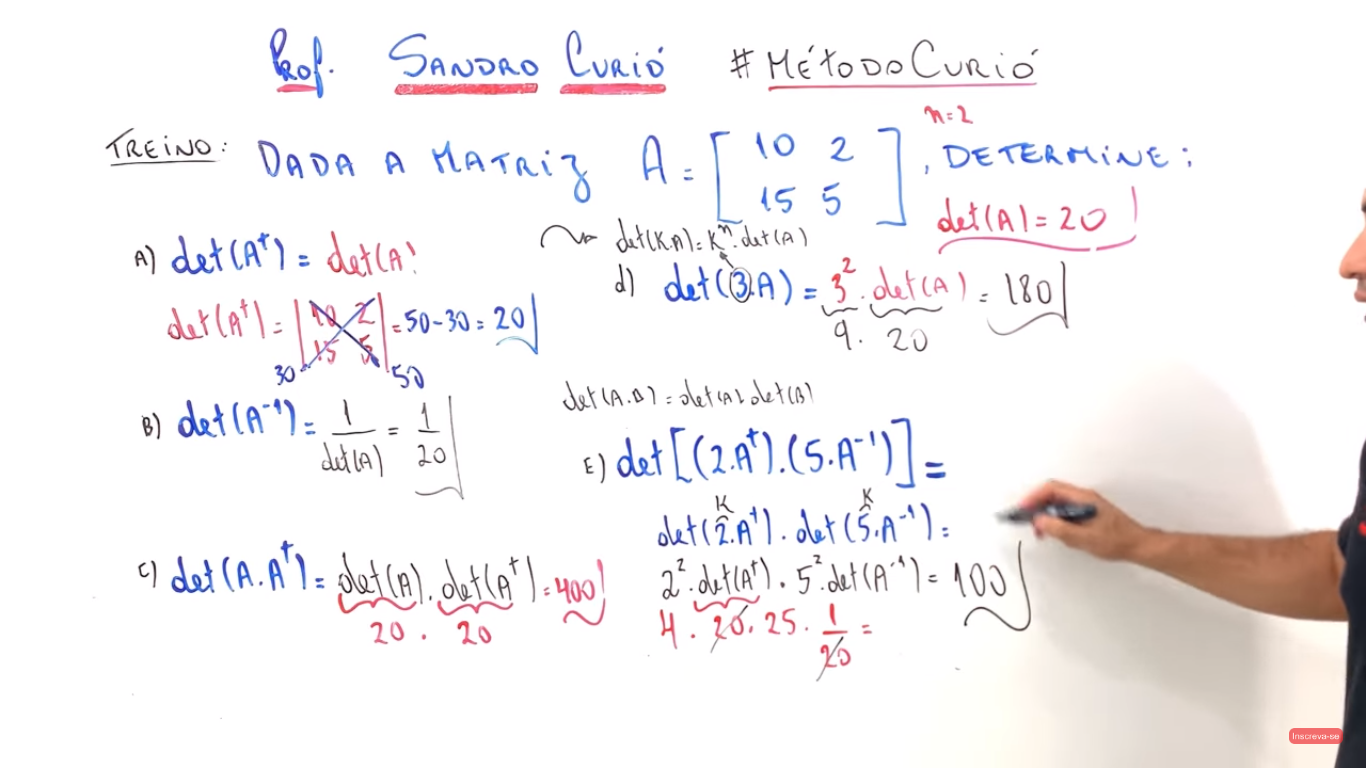 Prof. SANDRO CURIÓ #MÉTODO CURIÓ
TREINO: DADA A MATRIZ A = [ 10 2 , DETERMINE:
15 5 ]
n=2
det(A) = 20
A) det(Aᵗ) = det(A)
det(Aᵗ) = | 10 2 | = 50-30 = 20
15 5
30 50
B) det(A⁻¹) = 1/det(A) = 1/20
C) det(A.Aᵗ) = det(A). det(Aᵗ) = 400
20 . 20
det(K.A) = Kⁿ. det(A)
d) det(3.A) = 3². det(A) = 180
9. 20
det(A.B) = det(A). det(B)
E) det[(2.Aᵗ).(5.A⁻¹)] =
K K
det(2.Aᵗ). det(5.A⁻¹) =
2². det(Aᵗ). 5². det(A⁻¹) = 100
4. 20. 25. 1/20 =
Inscreva-se